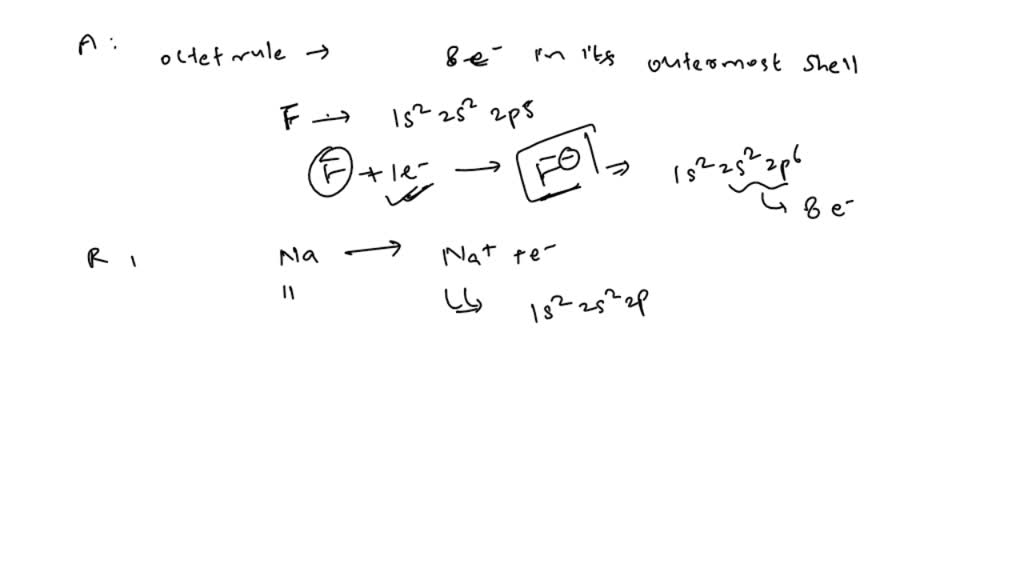 A: octet rule → 8e⁻ in its outermost shell
F → 1s² 2s² 2p⁵
F + 1e⁻ → F⊖ ⇒ 1s² 2s² 2p⁶
↳ 8 e⁻
R , Na → Na⁺ + e⁻
11 ↳ 1s² 2s² 2p